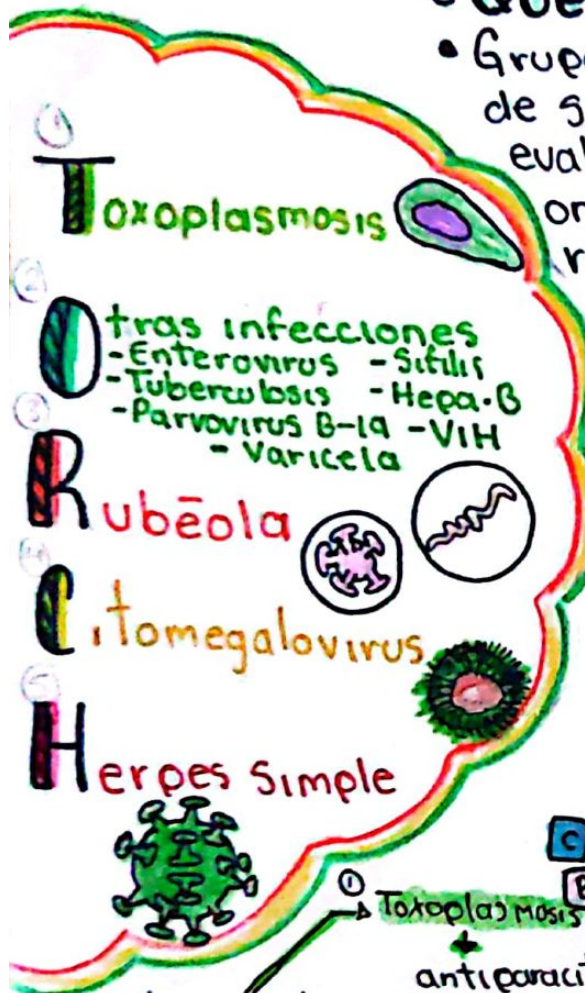 • Grup
de s
eval
① Toxoplasmosis
② Otras infecciones
-Enterovirus -Sífilis
-Tuberculosis -Hepa.B
-Parvovirus B-19 -VIH
- Varicela
③ Rubēola
④ Citomegalovirus
⑤ Herpes Simple
C
① Toxoplasmosis
+
antiparacit